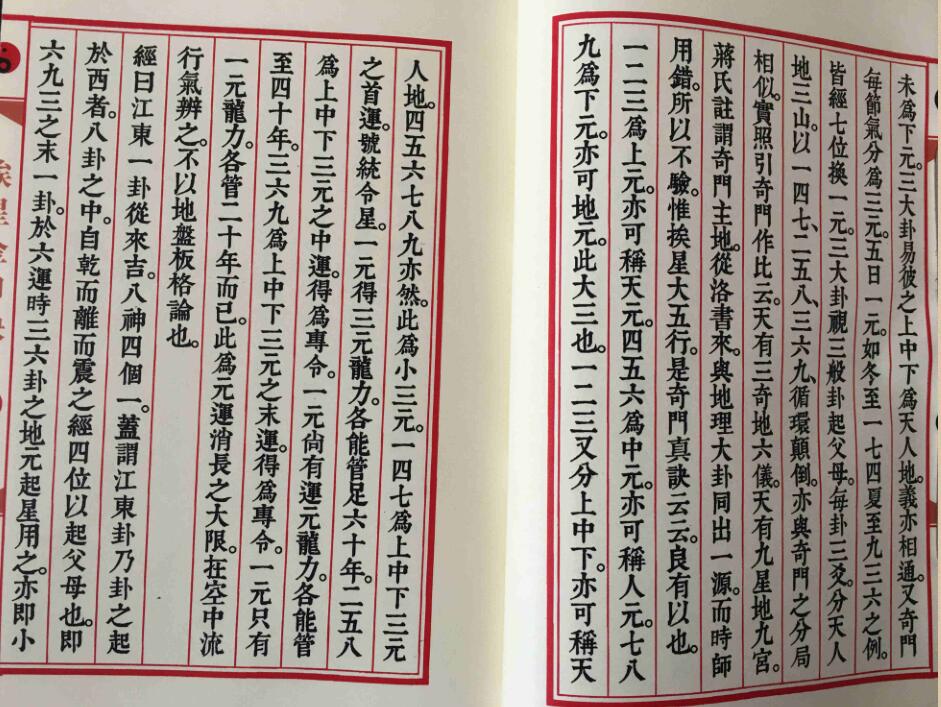 未爲下元。三大卦易彼之上中下爲天人地。義亦相通。又奇門
每節氣分爲三元。五日一元。如冬至一七四夏至九三六之例。
皆經七位換一元。三大卦視三般卦起父母。每卦三爻。分天人
地三山。以一四七、二五八、三六九、循環顛倒。亦與奇門之分局
相似。實照引奇門作比云。天有三奇地六儀。天有九星地九宮。
蔣氏註謂奇門主地。從洛書來。與地理大卦同出一源。而時師
用錯。所以不驗。惟挨星大五行。是奇門真訣云云。良有以也。
一二三爲上元。亦可稱天元。四五六爲中元。亦可稱人元。七八
九爲下元。亦可地元。此大三也。一二三又分上中下。亦可稱天
人地。四五六七八九亦然。此爲小三元。一四七爲上中下三元
之首運。號統令星。一元得三元龍力。各能管足六十年。二五八
爲上中下三元之中運。得爲專令。一元尙有運元龍力。各能管
至四十年。三六九爲上中下三元之末運。得爲專令。一元只有
一元龍力。各管二十年而已。此爲元運消長之大限。在空中流
行氣辨之。不以地盤板格論也。
經曰江東一卦從來吉。八神四個一。蓋謂江東卦乃卦之起
於西者。八卦之中。自乾而離而震之經四位以起父母也。即
六九三之末一卦。於六運時三六卦之地元起星用之。亦即小